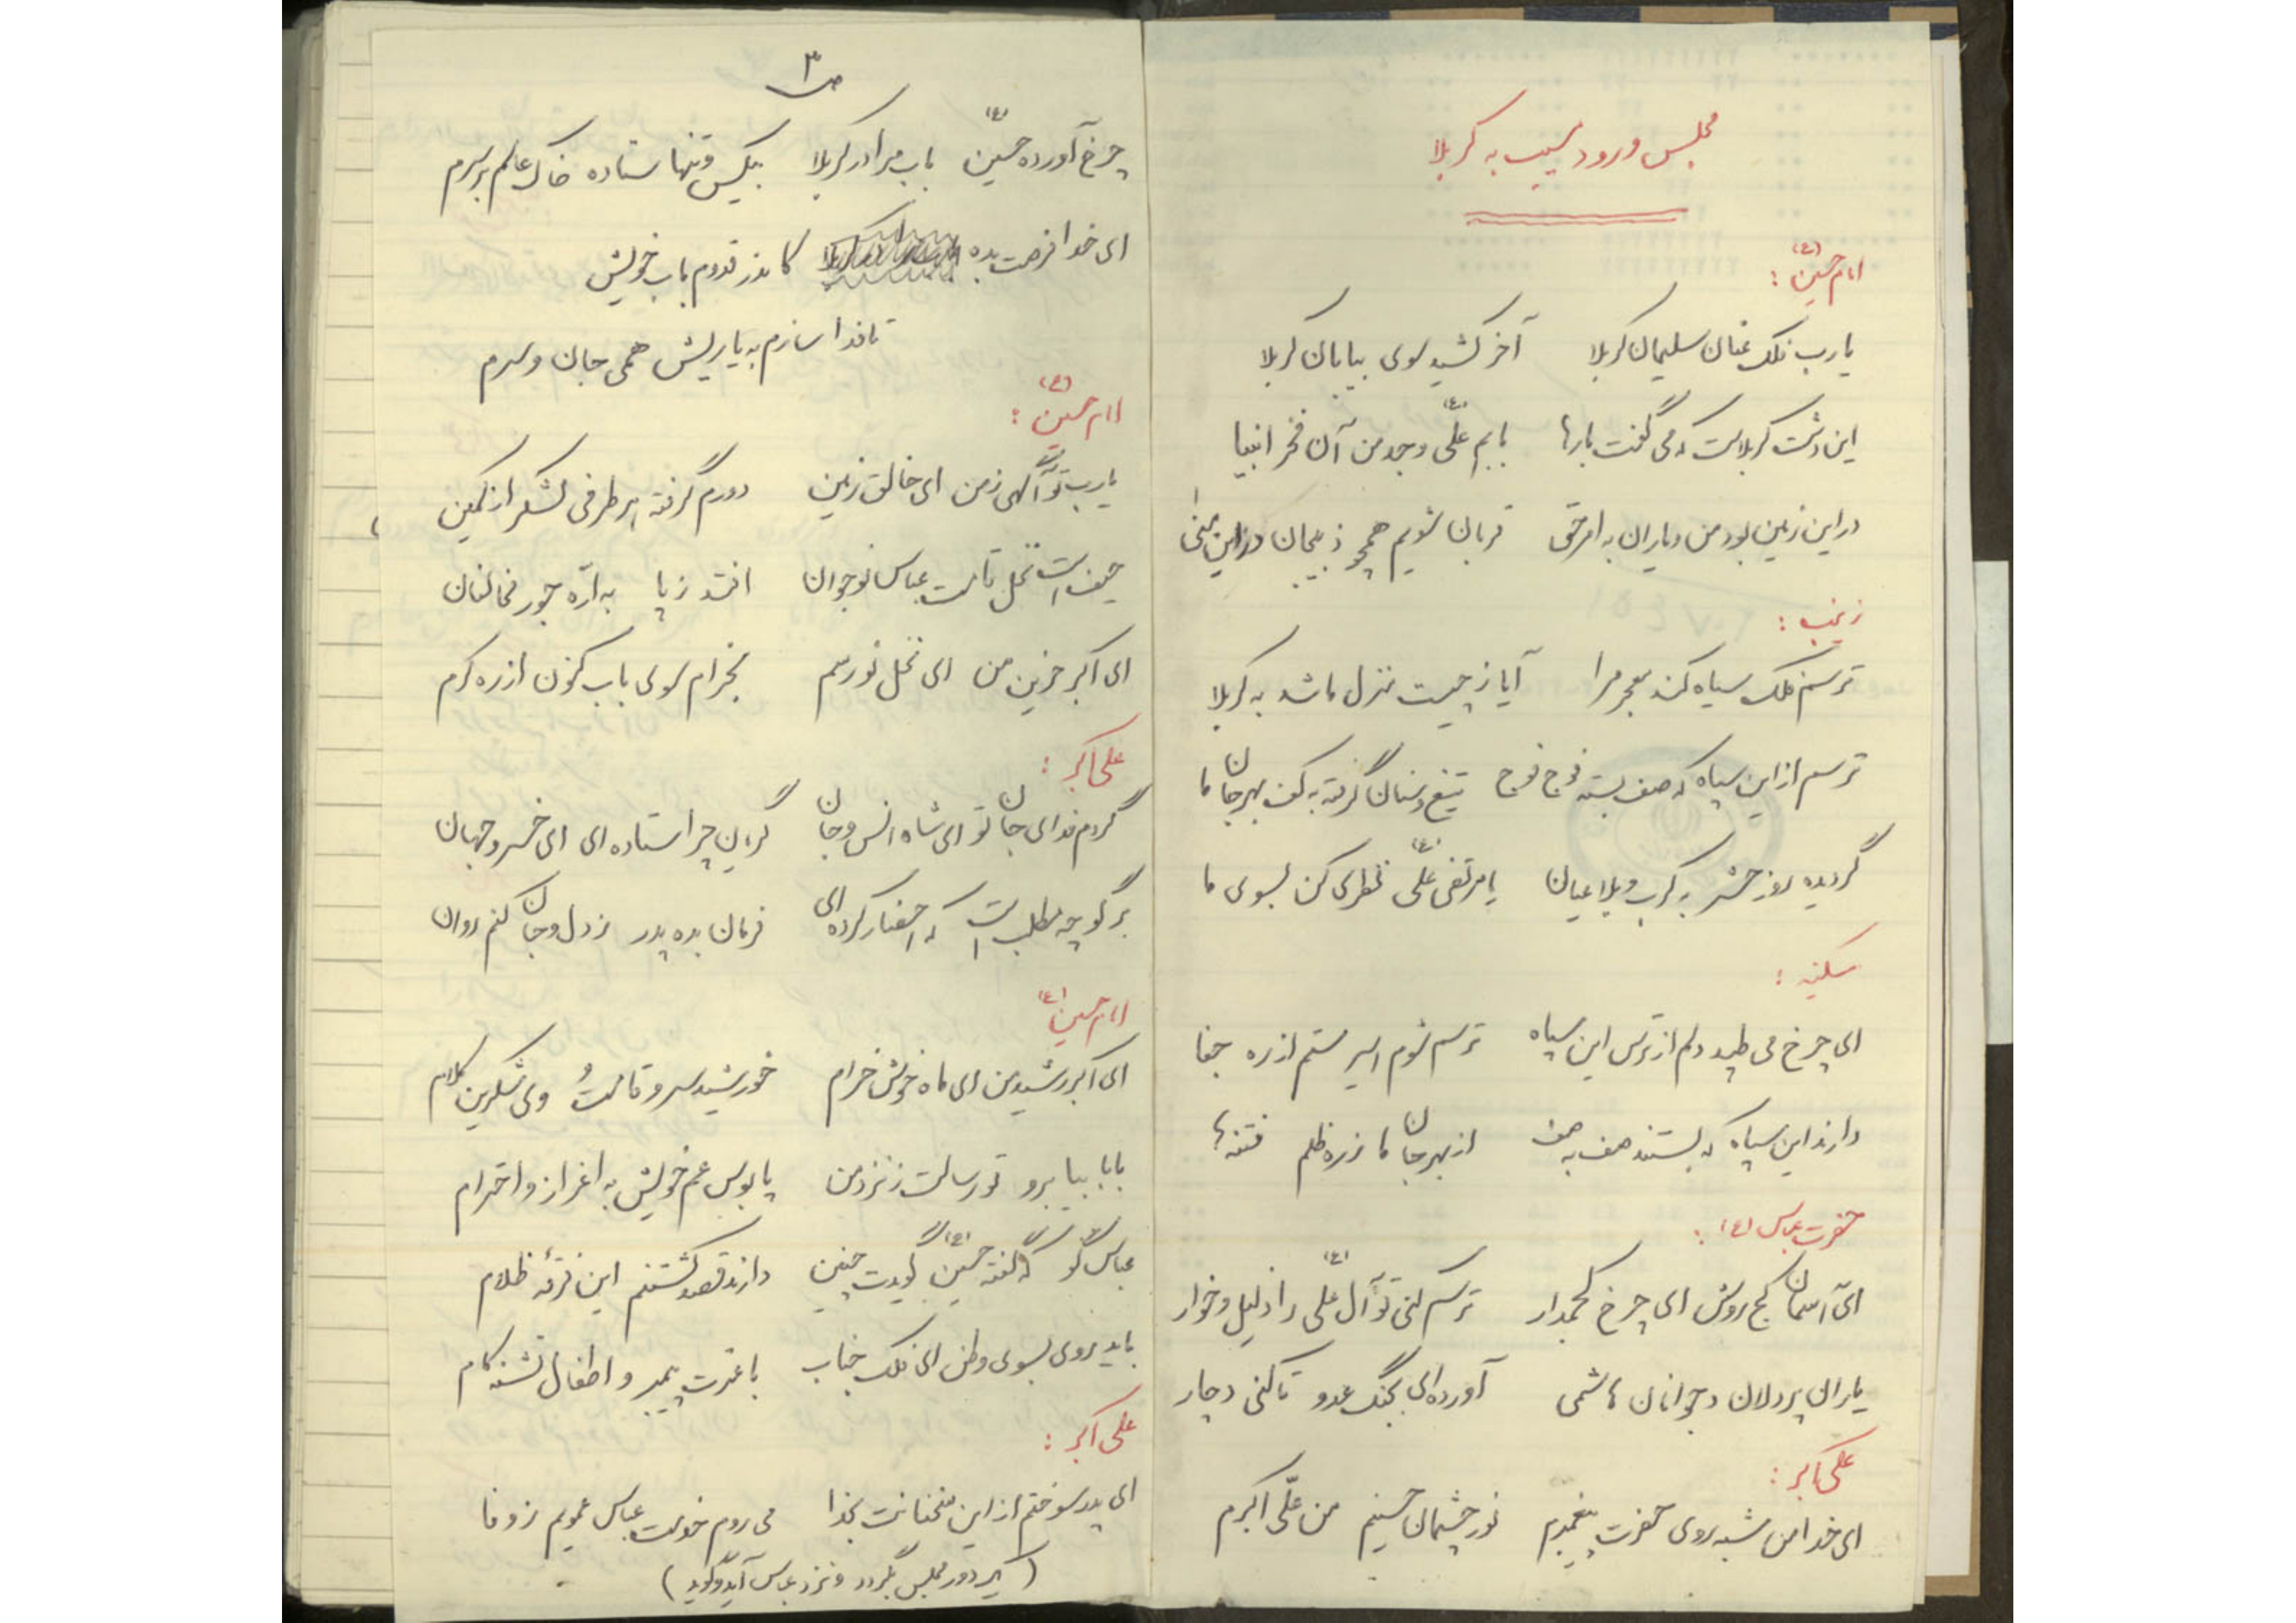 مجلس ورود به کربلا
امام حسین (ع) :
یا رب فلک عنان سلیمان کربلا آخر کشید سوی بیابان کربلا
این دشت کربلاست که می گفت بارها بابم علی (ع) و جد من آن فخر انبیا
در این زمین بود من و یاران به امر حق قربان شویم همچو ذبیحان در این منی
زینب :
ترسم فلک سیاه کند معجر مرا آیا ز چیست منزل ما شد به کربلا
ترسم از این سپاه که صف بسته فوج فوج تیغ و سنان گرفته به کف بهر جان ما
گردیده روز حشر به کرب و بلا عیان یا مرتضی علی (ع) نظری کن بسوی ما
سکینه :
ای چرخ می طپد دلم از ترس این سپاه ترسم شوم اسیر ستم از ره جفا
دارند این سپاه که بستند صف به صف از بهر جان ما ز ره ظلم فتنه ها
حضرت عباس (ع) :
ای آسمان کج روش ای چرخ کجمدار ترسم کنی تو آل علی (ع) را ذلیل و خوار
یاران پر دلان و جوانان هاشمی آورده ای بجنگ عدو تا کنی دچار
علی اکبر :
ای خدا من شبه روی حضرت پیغمبرم نور چشمان حسینم من علی اکبرم
ص ۳
چرخ آورده حسین (ع) باب مرا در کربلا بیکس و تنها ستاده خاک عالم بر سرم
ای خدا فرصت بده کا ندر قدوم باب خویش
تا فدا سازم به یاریش همی جان و سرم
امام حسین (ع) :
یا رب تو آگهی ز من ای خالق زمین دورم گرفته هر طرفی لشکر از کمین
حیف است نخل قامت عباس نوجوان افتد ز پا به اره جور مخالفان
ای اکبر حزین من ای نخل نورسم بخرام سوی باب کنون از ره کرم
علی اکبر :
گردم فدای جان تو ای شاه انس و جان گریان چرا ستاده ای ای خسرو جهان
بر گو چه مطلب است که احضار کرده ای فرمان بده پدر ز دل و جان کنم روان
امام حسین (ع)
ای اکبر رشید من ای ماه خوش خرام خورشید سرو قامت و وی شکرین کلام
بابا بیا برو تو رسالت ز نزد من پابوس عم خویش به اعزاز و احترام
عباس گو که گفته حسین (ع) گویدت چنین دارند قصد کشتنم این فرقهٔ ظلام
باید روی بسوی وطن ای فلک جناب با عترت پیمبر و اطفال تشنه کام
علی اکبر :
ای پدر سوختم از این سخنانت بخدا می روم خدمت عباس عمویم ز وفا
(اکبر دور مجلس بگردد و نزد عباس آید و گوید)